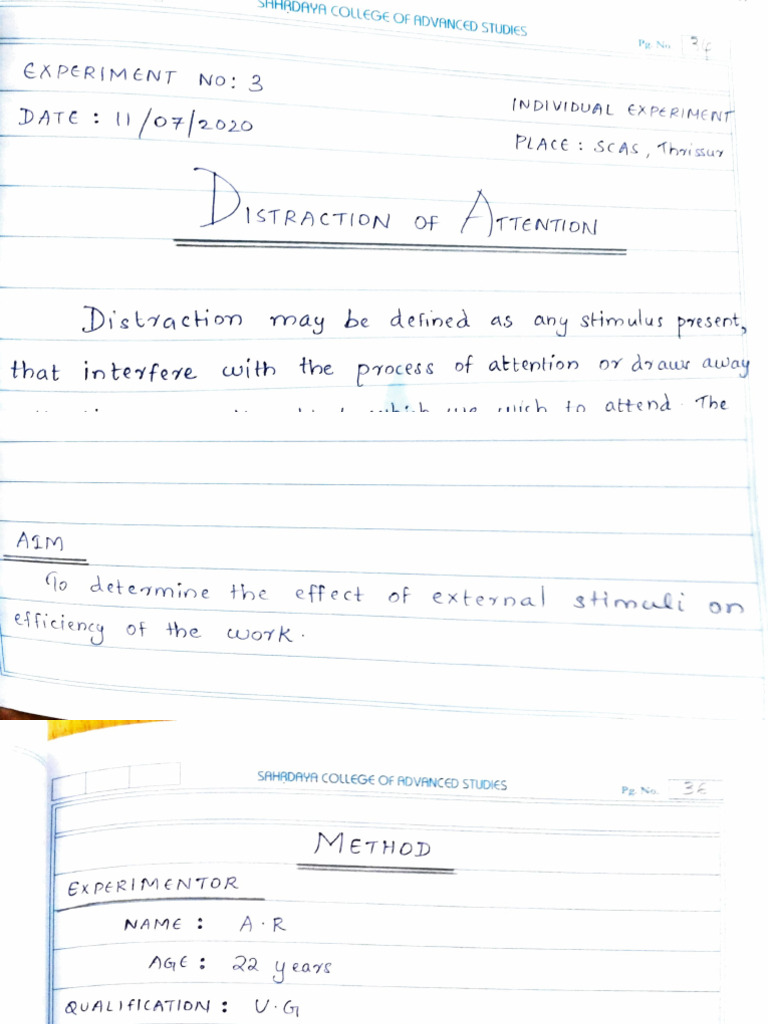 SAHRDAYA COLLEGE OF ADVANCED STUDIES
Pg. No. 34
EXPERIMENT NO: 3
INDIVIDUAL EXPERIMENT
DATE : 11/07/2020
PLACE : SCAS, Thrissur
DISTRACTION OF ATTENTION
Distraction may be defined as any stimulus present,
that interfere with the process of attention or draws away
which we wish to attend. The
AIM
To determine the effect of external stimuli on
efficiency of the work.
SAHRDAYA COLLEGE OF ADVANCED STUDIES
Pg. No. 36
METHOD
EXPERIMENTOR
NAME : A.R
AGE : 22 years
QUALIFICATION : U.G